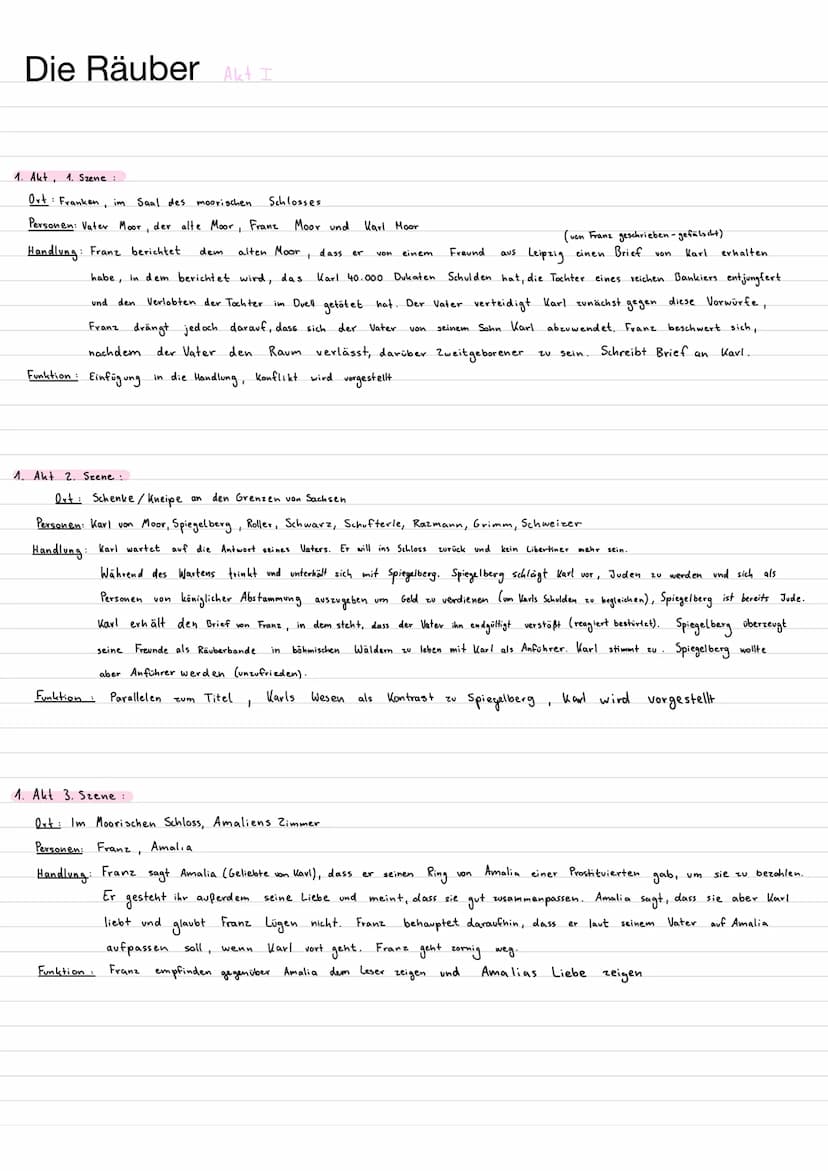 Die Räuber Akt I
1. Akt, 1. Szene:
Ort: Franken, im Saal des moorischen Schlosses
Personen: Vater Moor, der alte Moor, Franz Moor und Karl Moor
(von Franz geschrieben - gefälscht)
Handlung: Franz berichtet dem alten Moor, dass er von einem Freund aus Leipzig einen Brief von Karl erhalten
habe, in dem berichtet wird, das Karl 40.000 Dukaten Schulden hat, die Tochter eines reichen Bankiers entjungfert
und den Verlobten der Tochter im Duell getötet hat. Der Vater verteidigt Karl zunächst gegen diese Vorwürfe,
Franz drängt jedoch darauf, dass sich der Vater von seinem Sohn Karl abzuwendet. Franz beschwert sich,
nachdem der Vater den Raum verlässt, darüber Zweitgeborener zu sein. Schreibt Brief an Karl.
Funktion: Einfügung in die Handlung, Konflikt wird vorgestellt
1. Akt 2. Szene:
Ort: Schenke/Kneipe an den Grenzen von Sachsen
Personen: Karl von Moor, Spiegelberg, Roller, Schwarz, Schufterle, Razmann, Grimm, Schweizer
Handlung: Karl wartet auf die Antwort seines Vaters. Er will ins Schloss zurück und kein Libertiner mehr sein.
Während des Wartens trinkt und unterhält sich mit Spiegelberg. Spiegelberg schlägt Karl vor, Juden zu werden und sich als
Personen von königlicher Abstammung auszugeben um Geld zu verdienen (um Karls Schulden zu begleichen), Spiegelberg ist bereits Jude.
Karl erhält den Brief von Franz, in dem steht, dass der Vater ihn endgültigt verstößt (reagiert bestürzt). Spiegelberg überzeugt
seine Freunde als Räuberbande in böhmischen Wäldern zu leben mit Karl als Anführer. Karl stimmt zu. Spiegelberg wollte
aber Anführer werden (unzufrieden).
Funktion: Parallelen zum Titel, Karls Wesen als Kontrast zu Spiegelberg, Karl wird vorgestellt
1. Akt 3. Szene:
Ort: Im Moorischen Schloss, Amaliens Zimmer
Personen: Franz, Amalia
Handlung: Franz sagt Amalia (Geliebte von Karl), dass er seinen Ring von Amalia einer Prostituierten gab, um sie zu bezahlen.
Er gesteht ihr außerdem seine Liebe und meint, dass sie gut zusammenpassen. Amalia sagt, dass sie aber Karl
liebt und glaubt Franz Lügen nicht. Franz behauptet daraufhin, dass er laut seinem Vater auf Amalia
aufpassen soll, wenn Karl vort geht. Franz geht zornig weg.
Funktion: Franz empfinden gegenüber Amalia dem Leser zeigen und Amalias Liebe zeigen